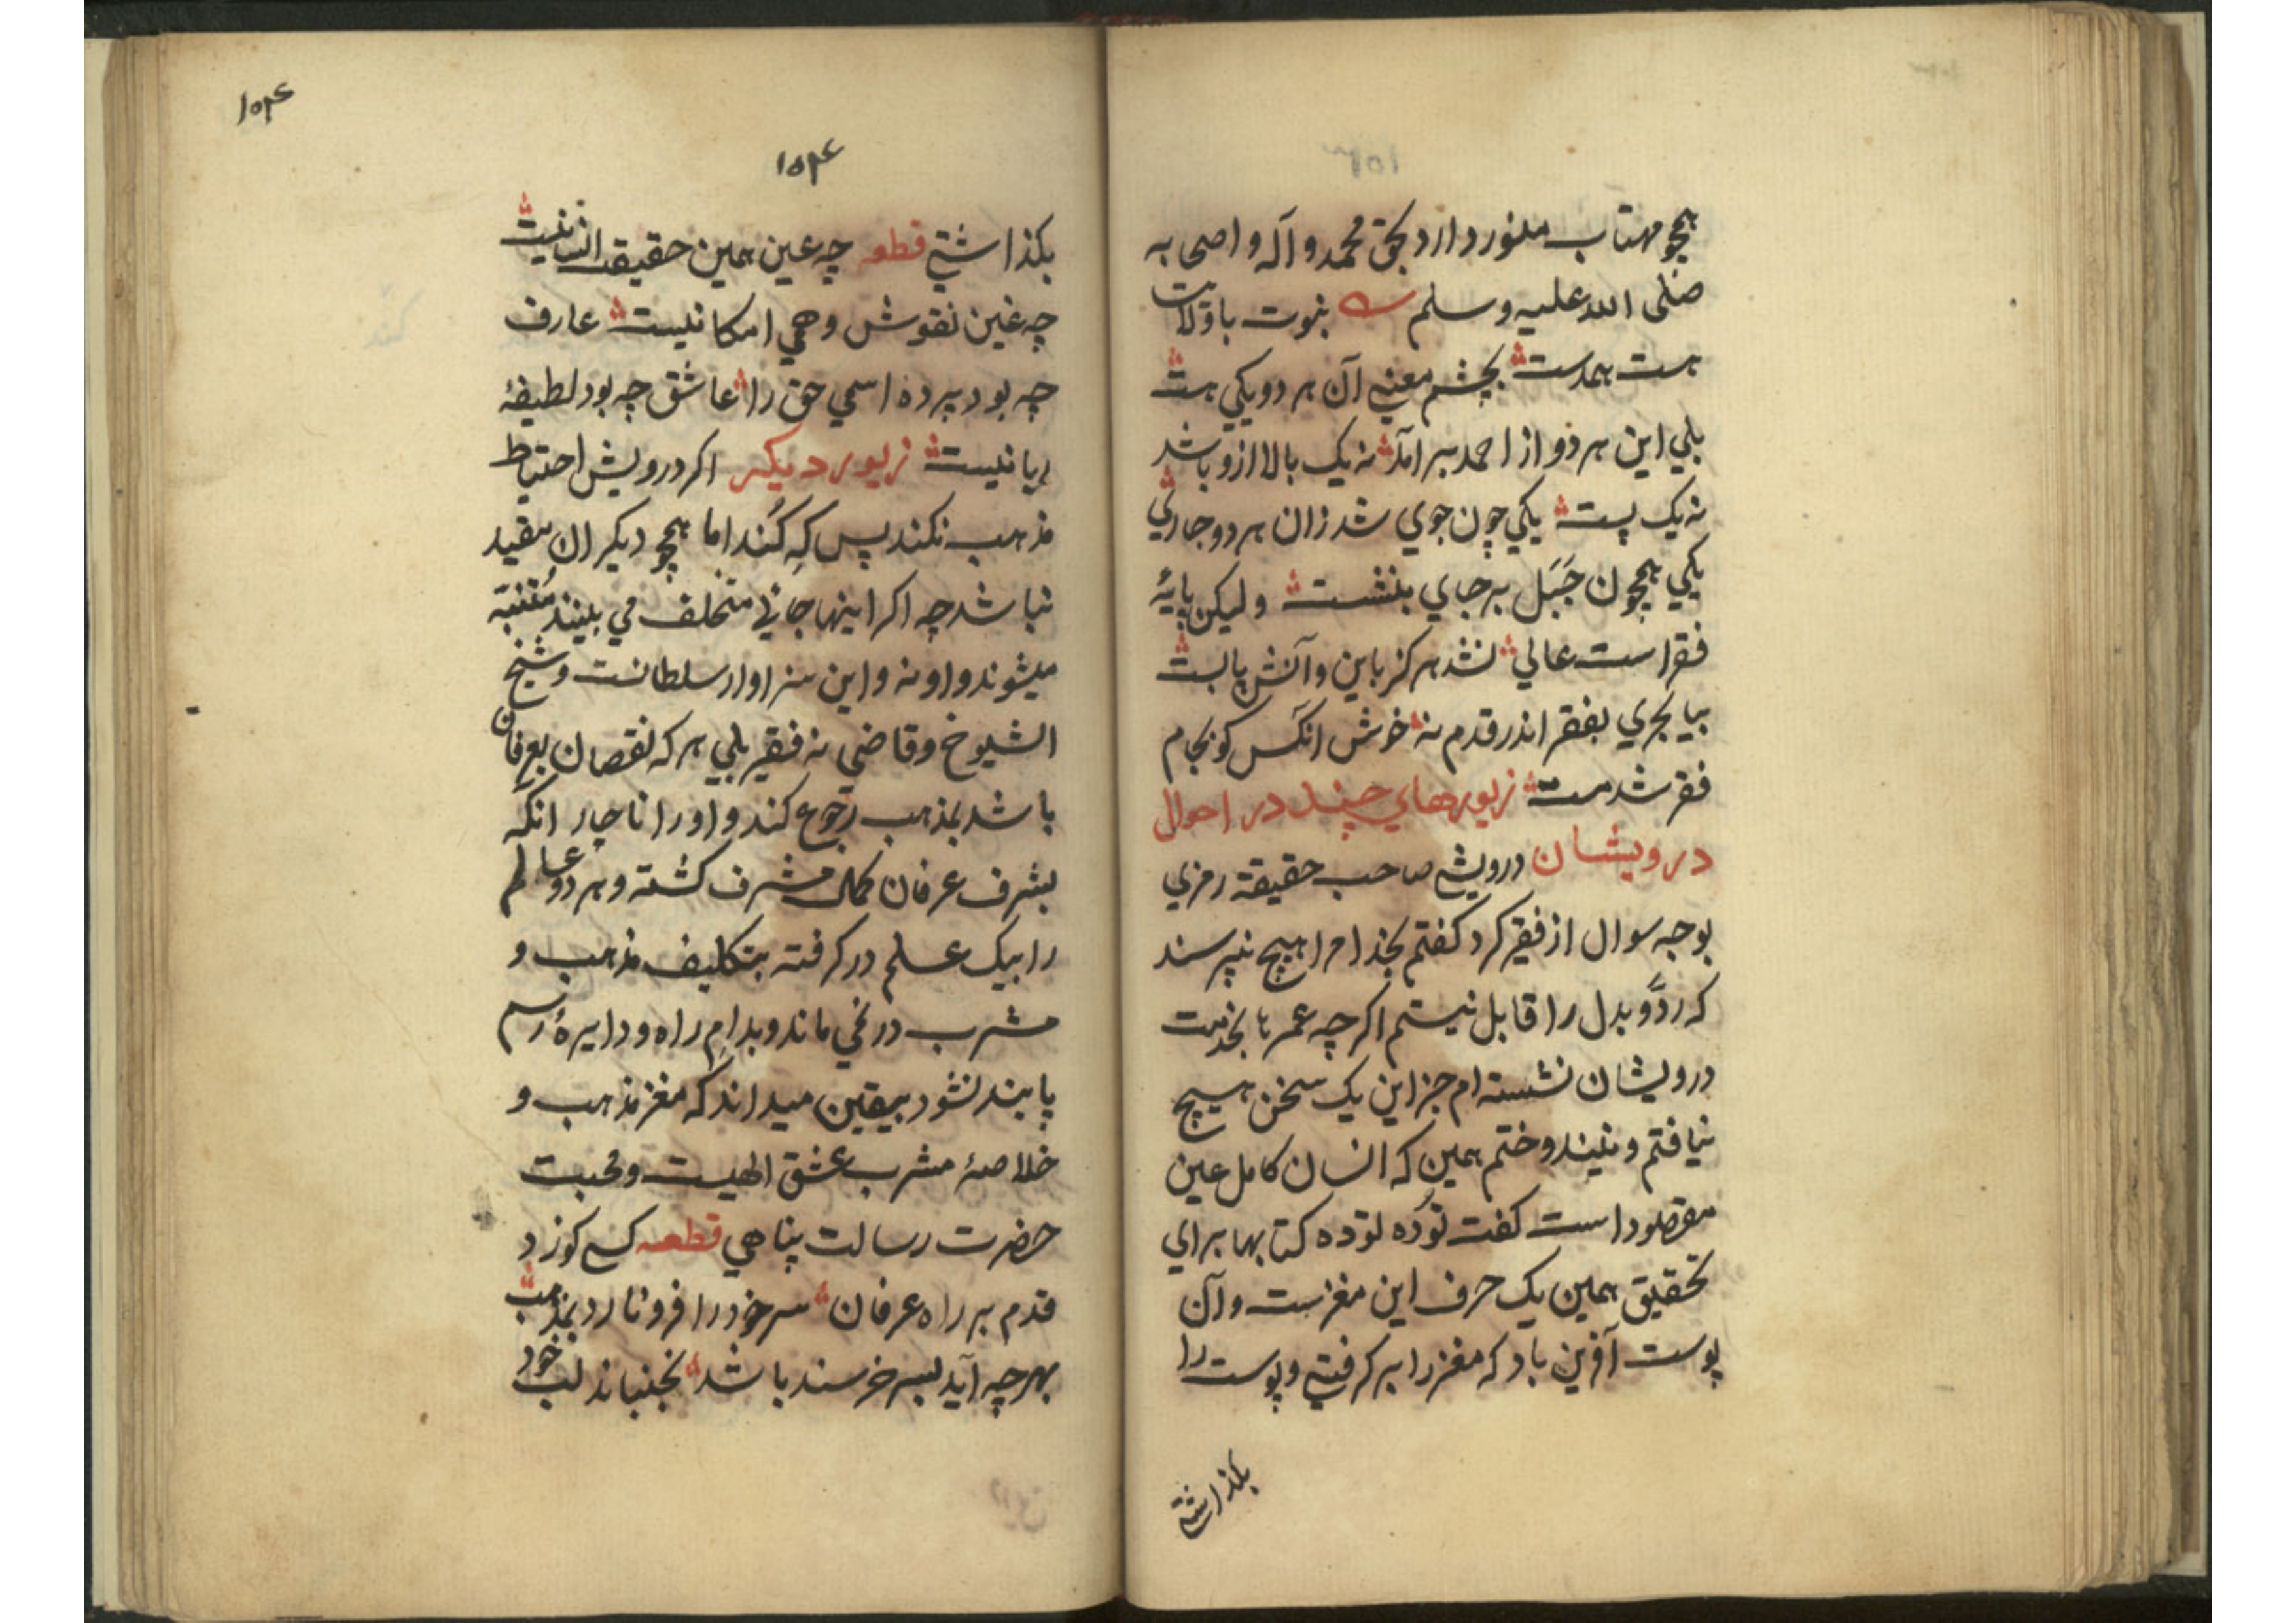 همچو مهتاب منور دارد بحق محمد و آله و اصحابه
صلی الله علیه وسلم بنبوت باولایت
هست همدست بچشم معنی آن هر دو یکی هست
بلی این هر دو از احمد برآمد نه یک بالا ازو باشد
نه یک پست یکی چون جوی شد زان هر دو جاری
یکی همچون جَبَل برجای بنشست ولیکن پایهٔ
فقر است عالی نشد هرکز باین و آنش پابست
بیا بحری بفقر اندر قدم نه خوش انکس کو بجام
فقر شد مست زیورهای چند در احوال
درویشان درویشی صاحب حقیقة رمزی
بوجه سوال از فقیر کرد کفتم بخدا مرا هیچ نپرسند
که ردّ و بدل را قابل نیستم اکرچه عمرها بخدمت
درویشان نشسته ام جز این یک سخن هیچ
نیافتم و نیندوختم همین که انسان کامل عین
مقصود است کفت توده توده کتابها برای
تحقیق همین یک حرف این مغزست و آن
پوست آفرین باد که مغز را برکرفتی و پوست را
بکذاشتی
۱۵۴
۱۵۴
بکذاشتی قطعه چه عین همین حقیقت انسانیست
چه غین نقوش وهمی امکانیست عارف
چه بود پرده اسمی حق را عاشق چه بود لطیفهٔ
ربانیست زیور دیکر اکر درویش احتیاط
مذهب نکند پس که کُند اما همچو دیکران مقید
نباشد چه اکر اینها جائی متخلف می بینند مُتنبّه
میشوند و او نه و این سزاوار سلطانست و شیخ
الشیوخ و قاضی نه فقیر بلی هرکه نقصان بعرفان
باشد بمذهب رجوع کند و اورا ناچار انکه
بشرف عرفان کمال مشرف کشته و هر دو عالم
را بیک علم در کرفته بتکلیف مذهب و
مشرب در نمی ماند و بدام راه و دایرهٔ رسم
پابند نشود بیقین میداند که مغز مذهب و
خلاصهٔ مشرب عشق الهیست و محبت
حضرت رسالت پناهی قطعه کسی کو زد
قدم بر راه عرفان سر خود را فرو نارد بمذهب
بهرچه آید بسر خرسند باشد نجنباند لب خود